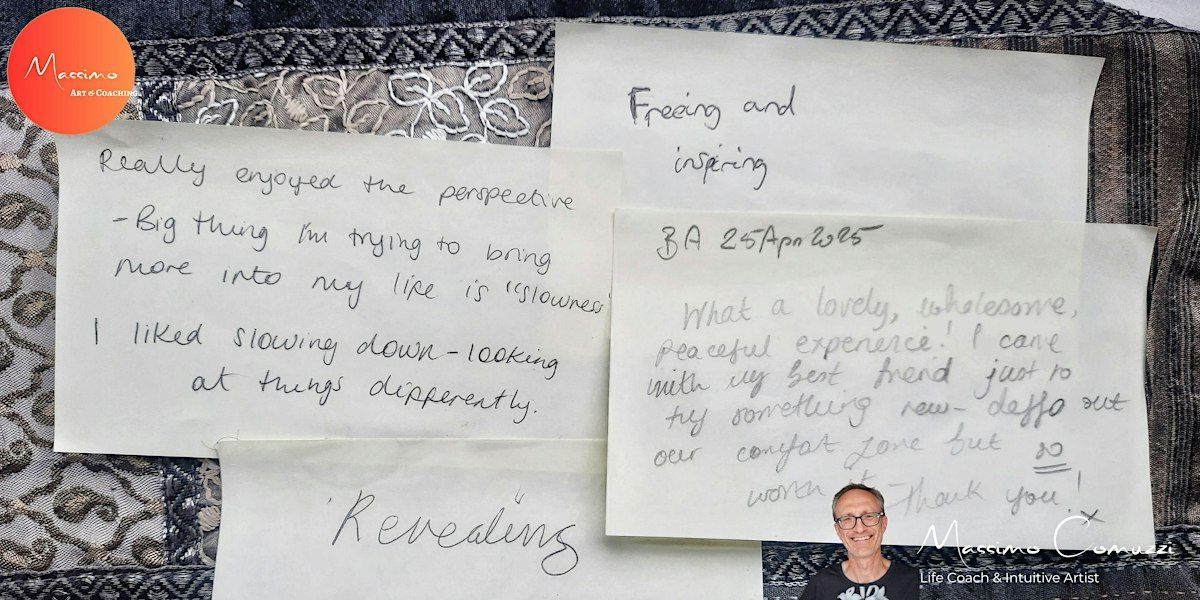 Massimo
ART & COACHING
Freeing and
inspiring
Really enjoyed the perspective
-Big thing I'm trying to bring
more into my life is "slowness"
I liked slowing down - looking
at things differently.
BA 25Apr2025
What a lovely, wholesome,
peaceful experience! I came
with my best friend just to
try something new - deffo out
our comfort zone but so
worth it - Thank you! x
"Revealing
Massimo Comuzzi
Life Coach & Intuitive Artist